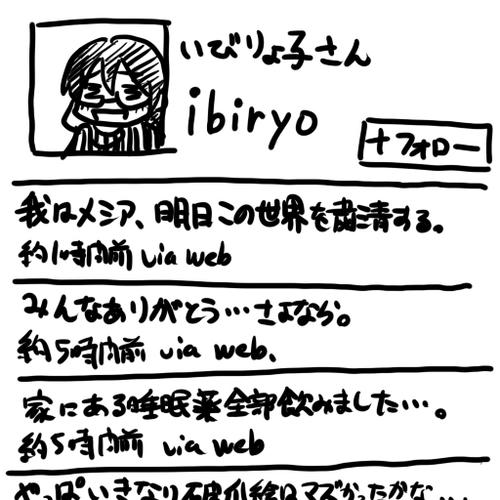 いびりょ子さん
ibiryo
+フォロー
我はメシア、明日この世界を粛清する。
約1時間前 via web
みんなありがとう…さよなら。
約5時間前 via web、
家にある睡眠薬全部飲みました…。
約5時間前 via web
やっぱいきなり破瓜絵はマズかったかな…